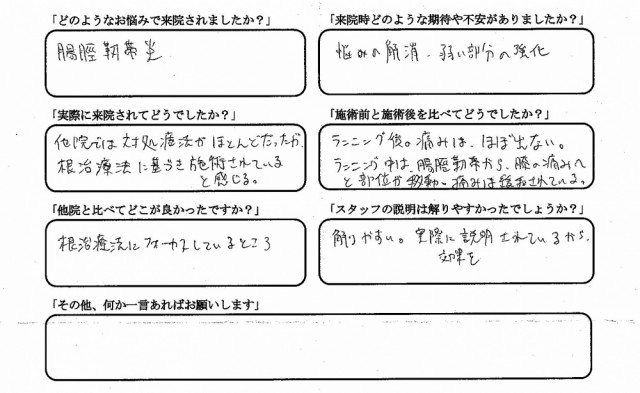 「どのようなお悩みで来院されましたか?」
腸脛靭帯炎
「来院時どのような期待や不安がありましたか?」
悩みの解消、弱い部分の強化
「実際に来院されてどうでしたか?」
他院では対処療法がほとんどだったが、
根治療法に基づき施術されている
と感じる。
「施術前と施術後を比べてどうでしたか?」
ランニング後の痛みは、ほぼ出ない。
ランニング中は、腸脛靭帯から、膝の痛みへ
と部位が移動。痛みは緩和されている。
「他院と比べてどこが良かったですか?」
根治療法にフォーカスしているところ
「スタッフの説明は解りやすかったでしょうか?」
解りやすい。実際に説明されているから、
効果を
「その他、何か一言あればお願いします」